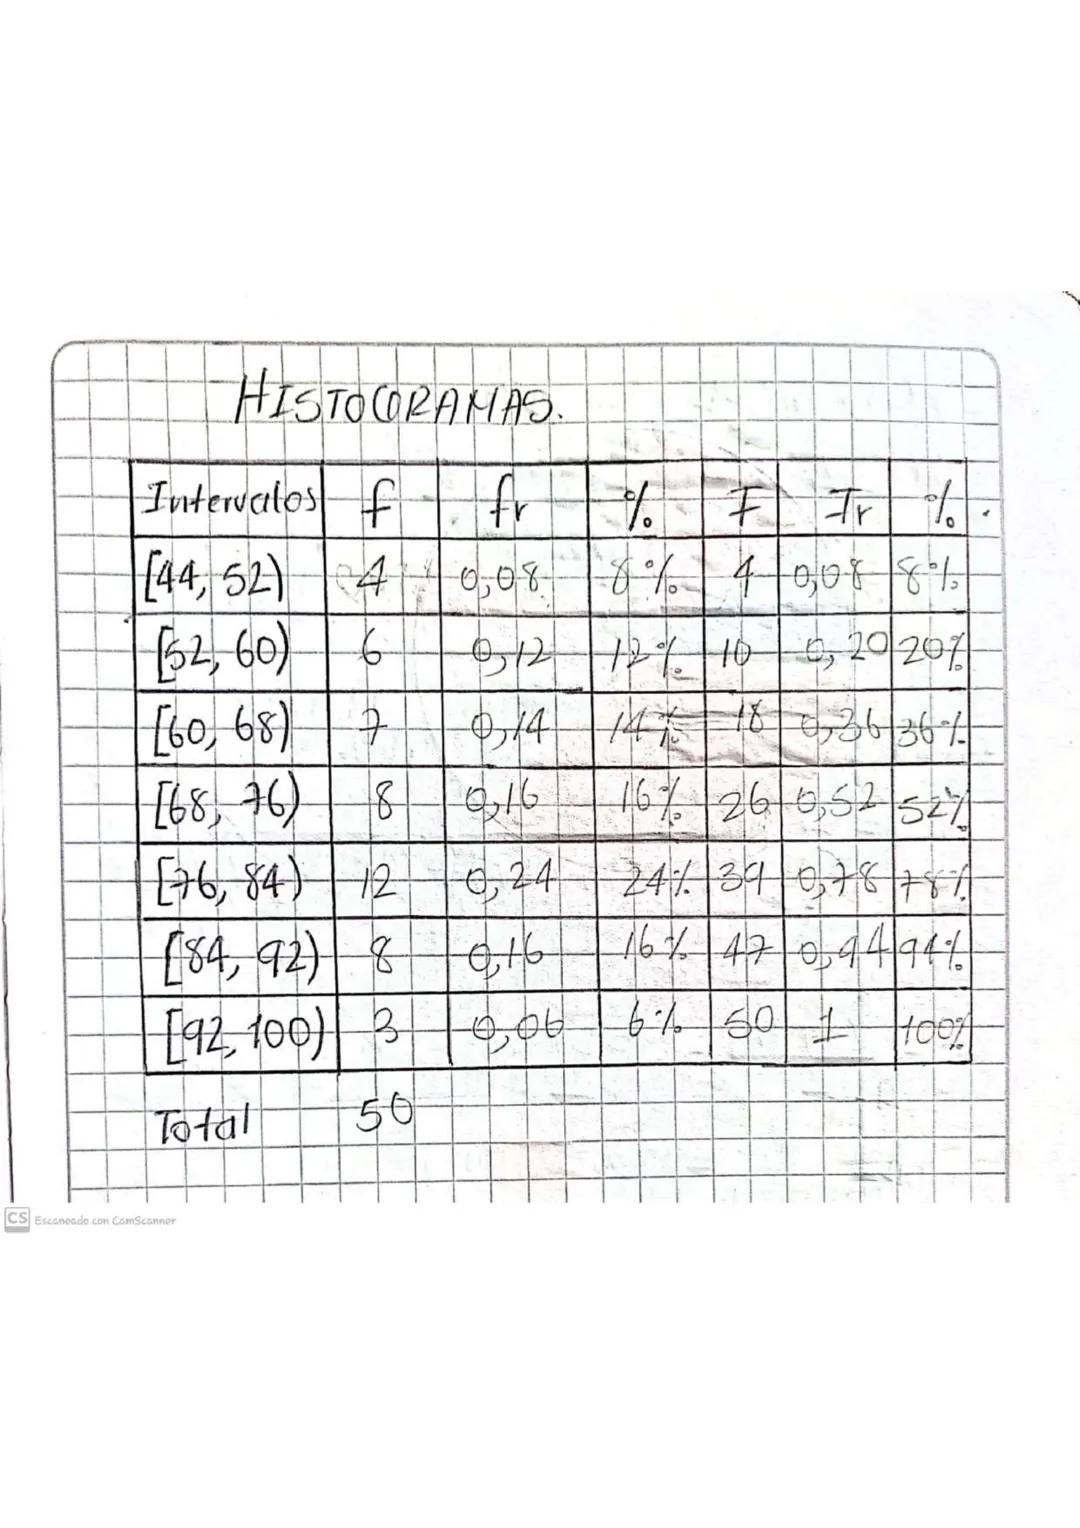 HISTOGRAMAS.
Intervalos f fr % F Fr %
[44, 52) 4 0,08 8% 4 0,08 8%
[52, 60) 6 0,12 12% 10 0,20 20%
[60, 68) 7 0,14 14% 18 0,36 36%
[68, 76) 8 0,16 16% 26 0,52 52%
[76, 84) 12 0,24 24% 39 0,78 78%
[84, 92) 8 0,16 16% 47 0,94 94%
[92, 100) 3 0,06 6% 50 1 100%
Total 50
CS Escaneado con CamScanner